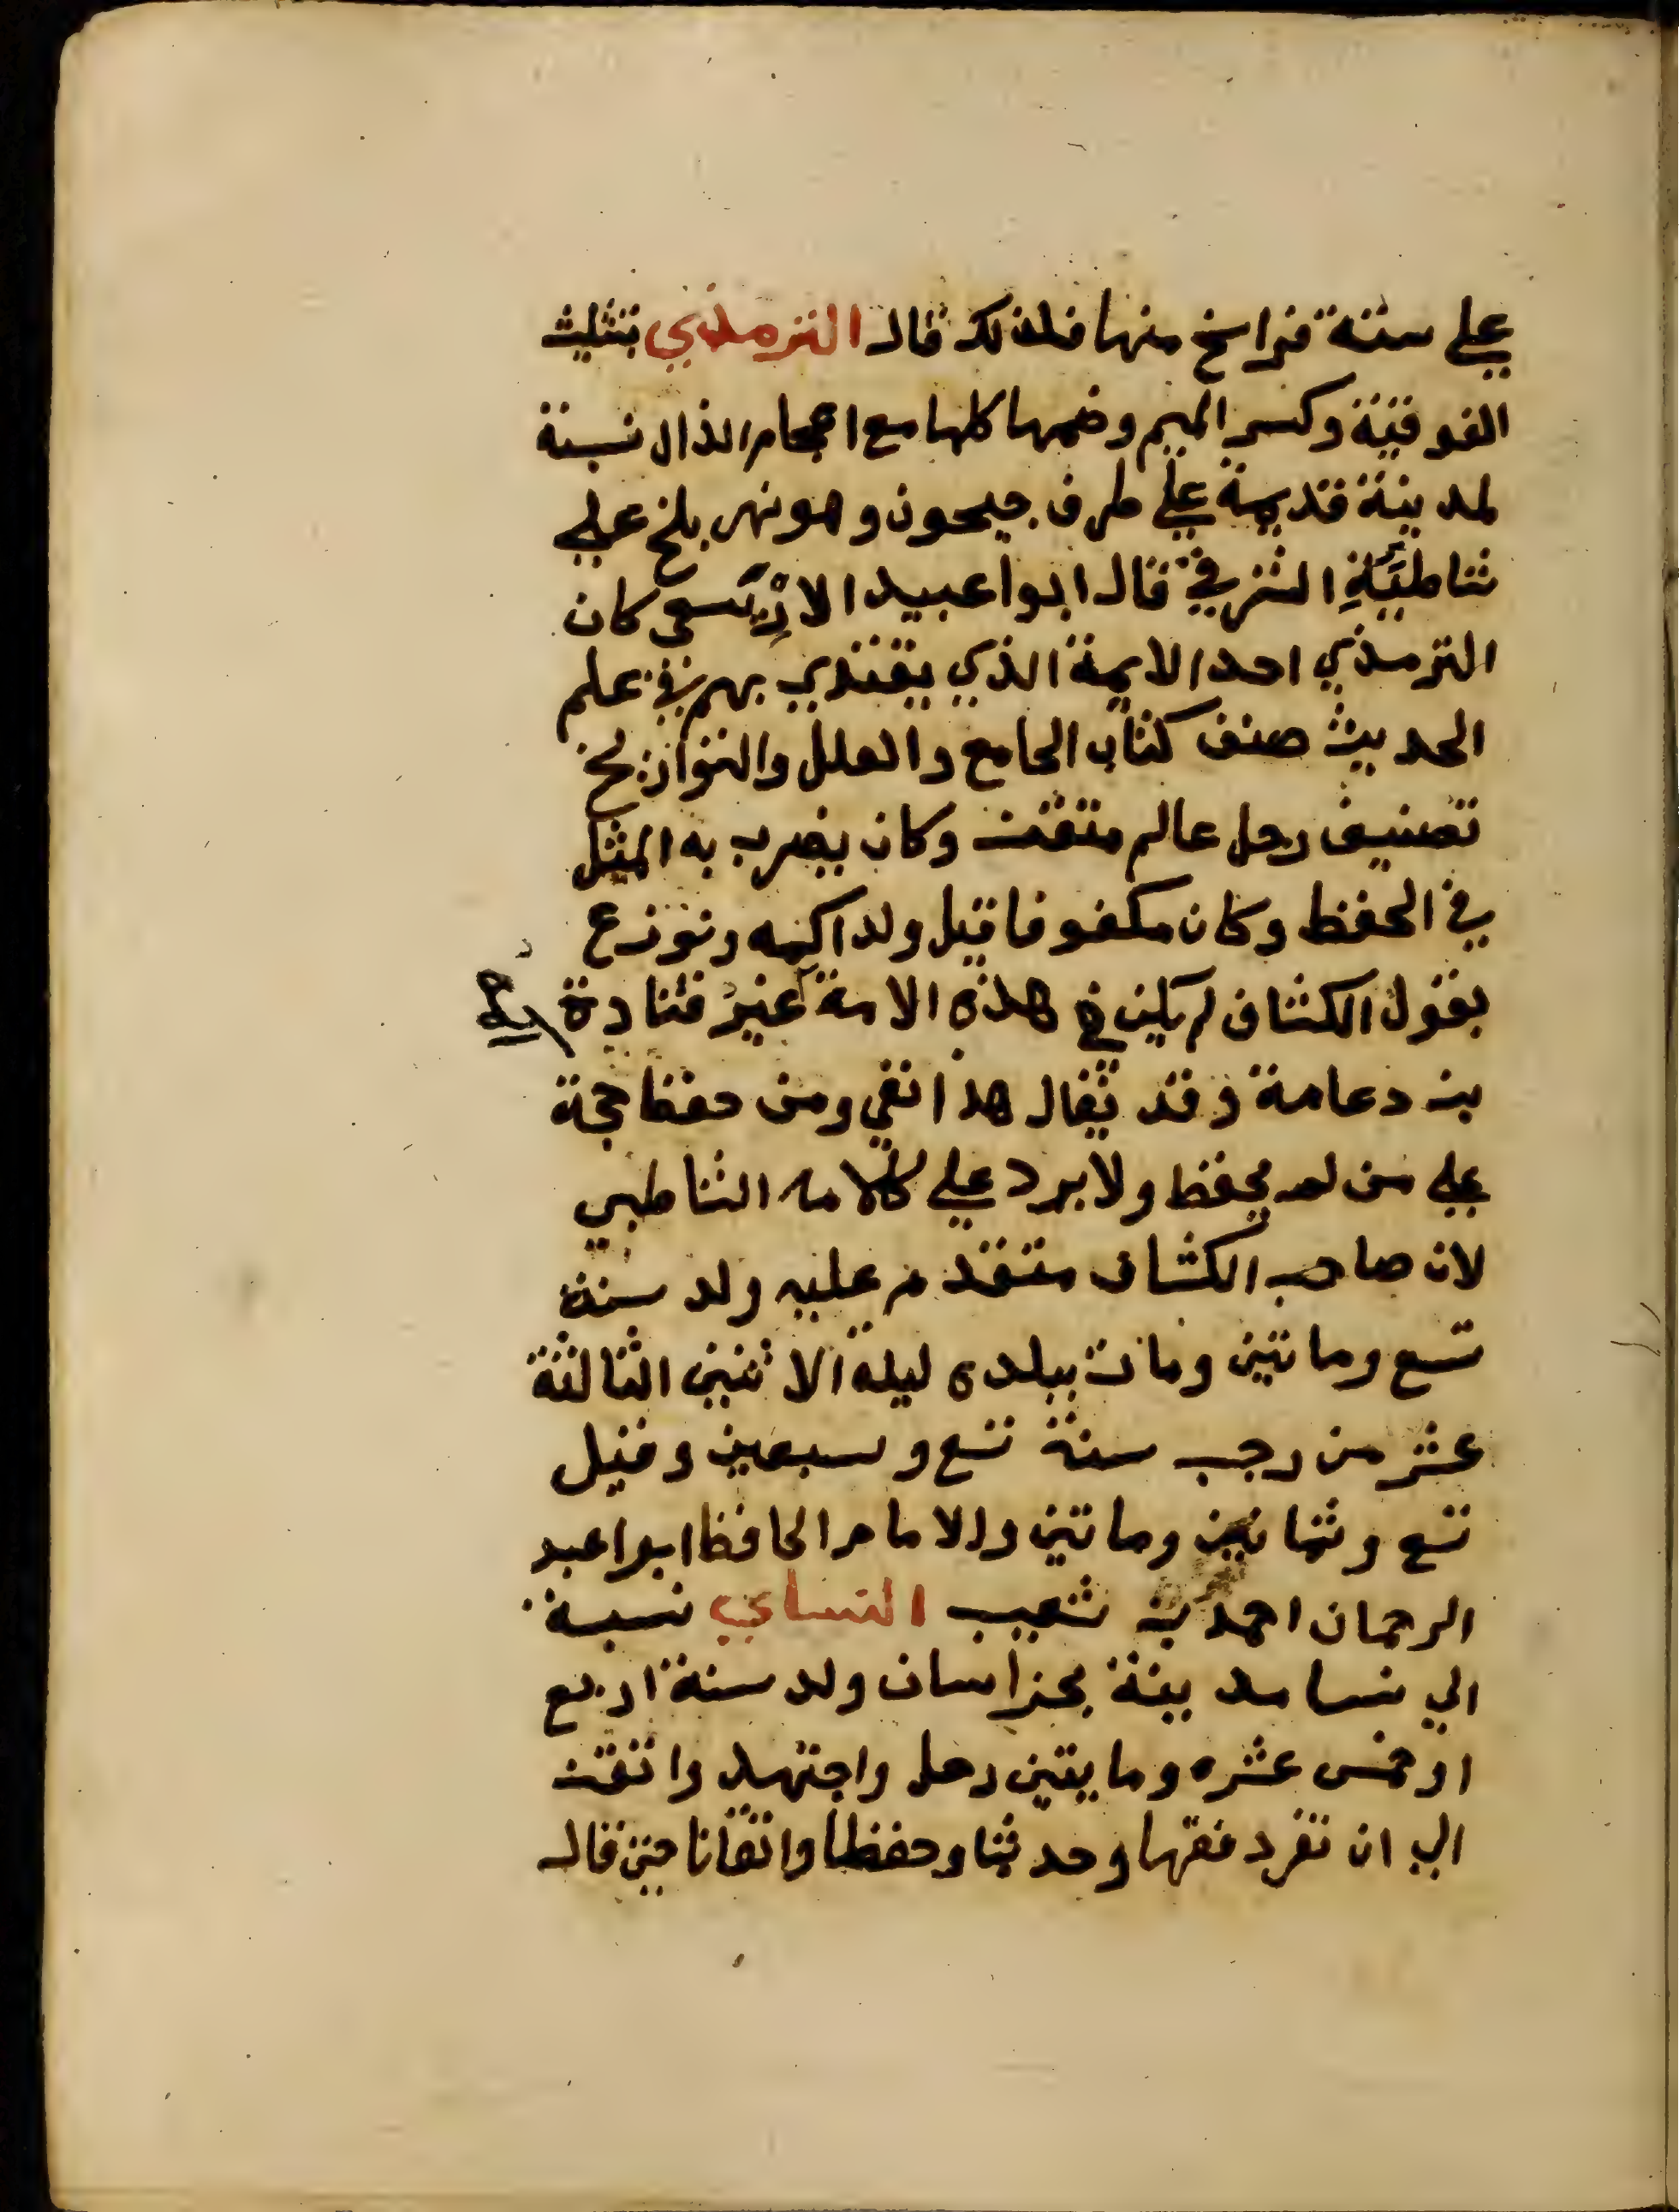 علي ستة فراسخ منها فلذلك قال الترمذي بتثليث
الفوقية وكسر الميم وضمها كلها مع اعجام الذال نسبة
لمدينة قديمة علي طرف جيحون وهو نهر بلخ علي
شاطيئه الشرقي قال ابوا عبيد الادريسي كان
الترمذي احد الايمة الذي يقتدي بهم في علم
الحديث صنف كتاب الجامع والعلل والتواريخ
تصنيف رجل عالم متقن وكان يضرب به المثل
في الحفظ وكان مكفوفا قيل ولد اكمه ونوزع
بقول الكشاف لم يكن في هذه الامة غير قتادة
بن دعامة وقد يقال هذا نفي ومن حفظ حجة
علي من لم يحفظ ولا يرد علي كلامه الشاطبي
لان صاحب الكشاف متقدم عليه ولد سنة
تسع وماتين ومات ببلده ليلة الاثنين الثالثة
عشر من رجب سنة تسع وسبعين وقيل
تسع وثمانين وماتين والامام الحافظ ابوا عبد
الرحمان احمد بن شعيب النساي نسبة
الي نسا مدينة بخراسان ولد سنة اربع
او خمس عشره ومايتين رحل واجتهد واتقن
الي ان تفرد فقها وحديثا وحفظا واتقانا حتى قال